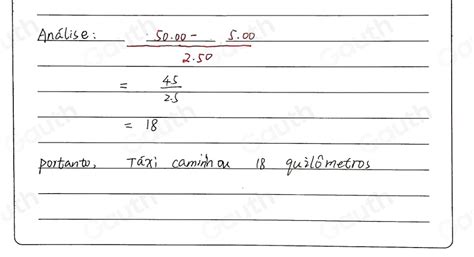 Análise: 50.00 - 5.00
2.50
= 45
2.5
= 18
portanto, Táxi caminhou 18 quilômetros